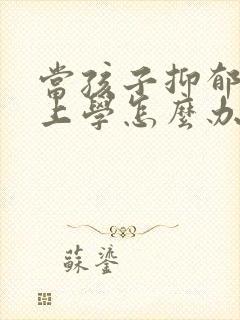 當孩子抑郁
上學怎麼办
蘇鎏